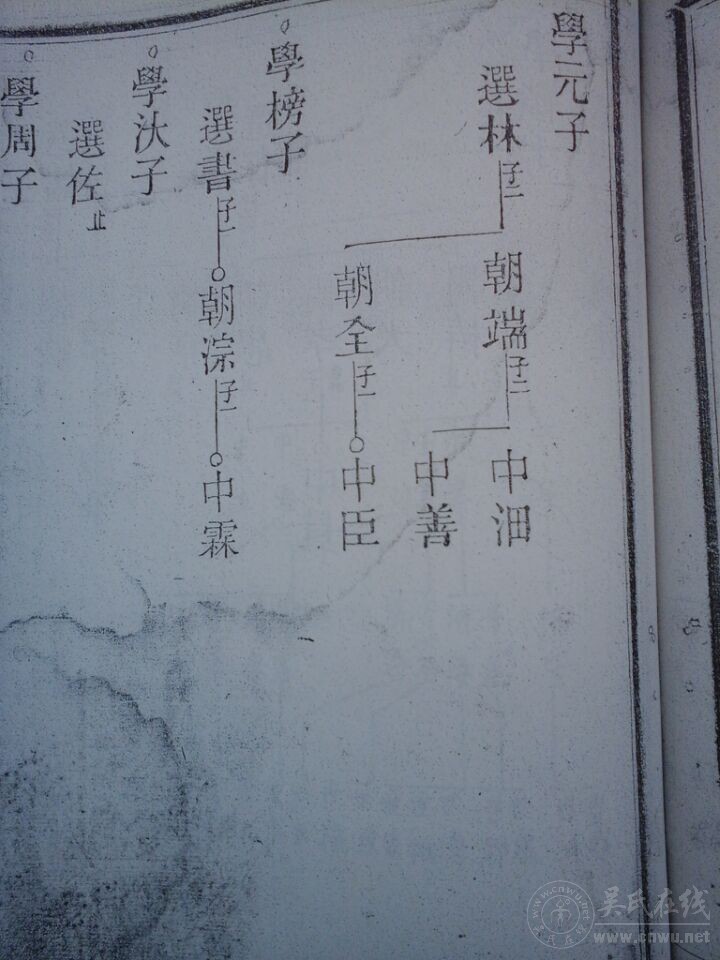 學元子
選林子二
朝端子二
中沺
中善
朝全子一
中臣
學榜子
選書子一
朝淙子一
中霖
學汏子
選佐止
學周子
吴氏在线
www.cnwu.net